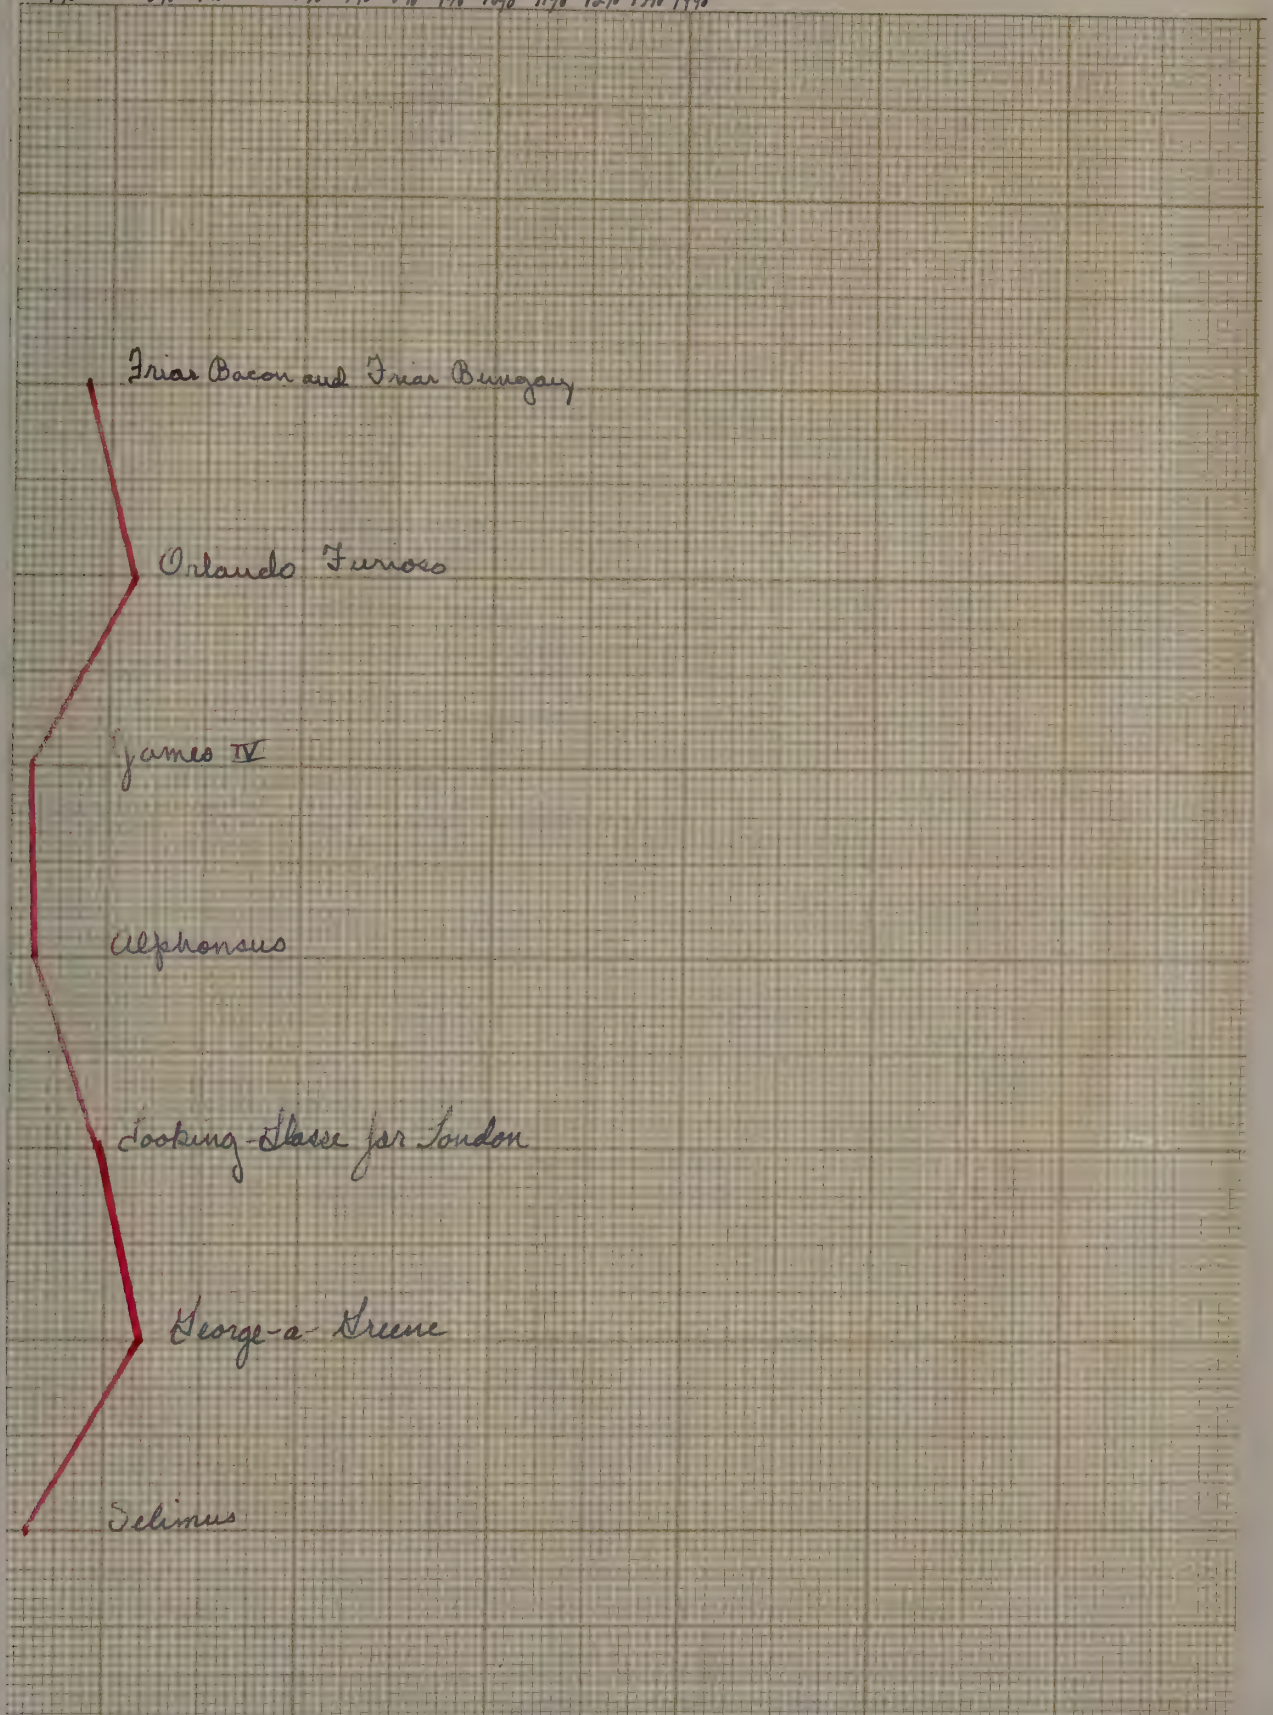 7% 8% 9% 10% 11% 12% 13% 14%
Friar Bacon and Friar Bungay
Orlando Furioso
James IV
Alphonsus
Looking-Glasse for London
George-a-Greene
Selimus